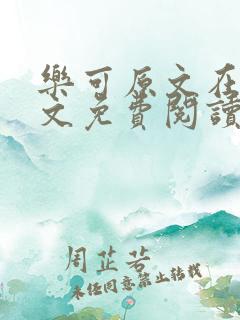 樂可原文在
文免費閱讀
周芷若
未經同意禁止轉載